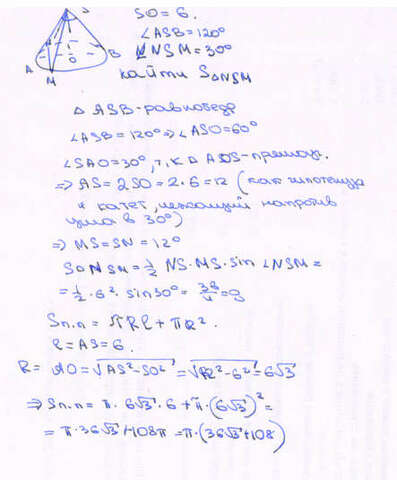 S
SO = 6.
∠ASB = 120°
∠NSM = 30°
найти S△NSM
A O B
M
△ ASB - равнобедр
∠ASB = 120° ⇒ ∠ASO = 60°
∠SAO = 30°, т.к △ AOS - прямоуг.
⇒ AS = 2SO = 2·6 = 12 (как гипотенуза
и катет, лежащий напротив
угла в 30°)
⇒ MS = SN = 12°
S△NSM = 1/2 NS·MS·sin ∠NSM =
= 1/2 · 6² · sin30° = 36/4 = 9
Sп.п = πRl + πR².
l = AS = 6.
R = AO = √AS² - SO² = √12² - 6² = 6√3
⇒ Sп.п = π · 6√3 · 6 + π · (6√3)² =
= π · 36√3 + 108π = π · (36√3 + 108)